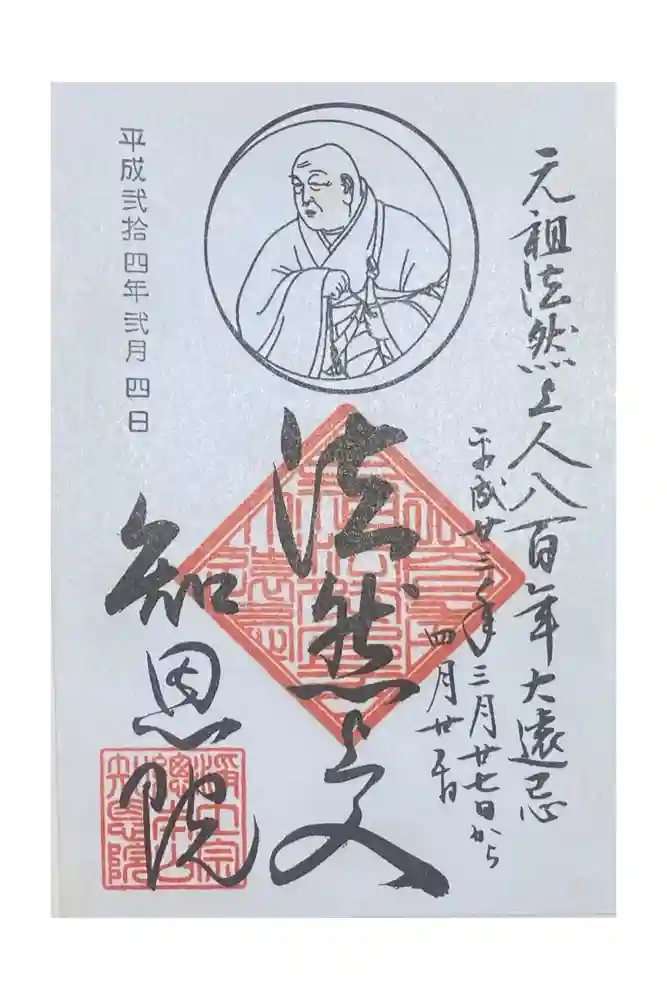 元祖法然上人八百年大遠忌
平成廿三年三月廿七日から
四月廿五日
法然上人
知恩院
平成弐拾四年弐月四日
淨土宗
總本山
知恩院